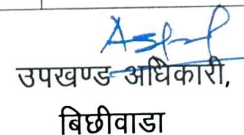 उपखण्ड अधिकारी,
बिछीवाडा